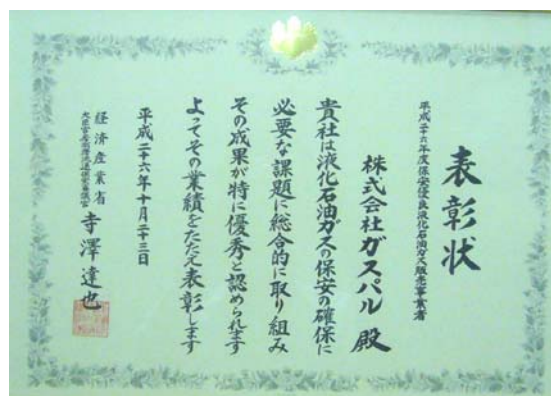 表彰状
平成二十六年度保安優良液化石油ガス販売事業者
株式会社ガスパル 殿
貴社は液化石油ガスの保安の確保に
必要な課題に総合的に取り組み
その成果が特に優秀と認められます
よってその業績をたたえ表彰します
平成二十六年十月二十三日
経済産業省
大臣官房商務流通保安審議官 寺澤達也